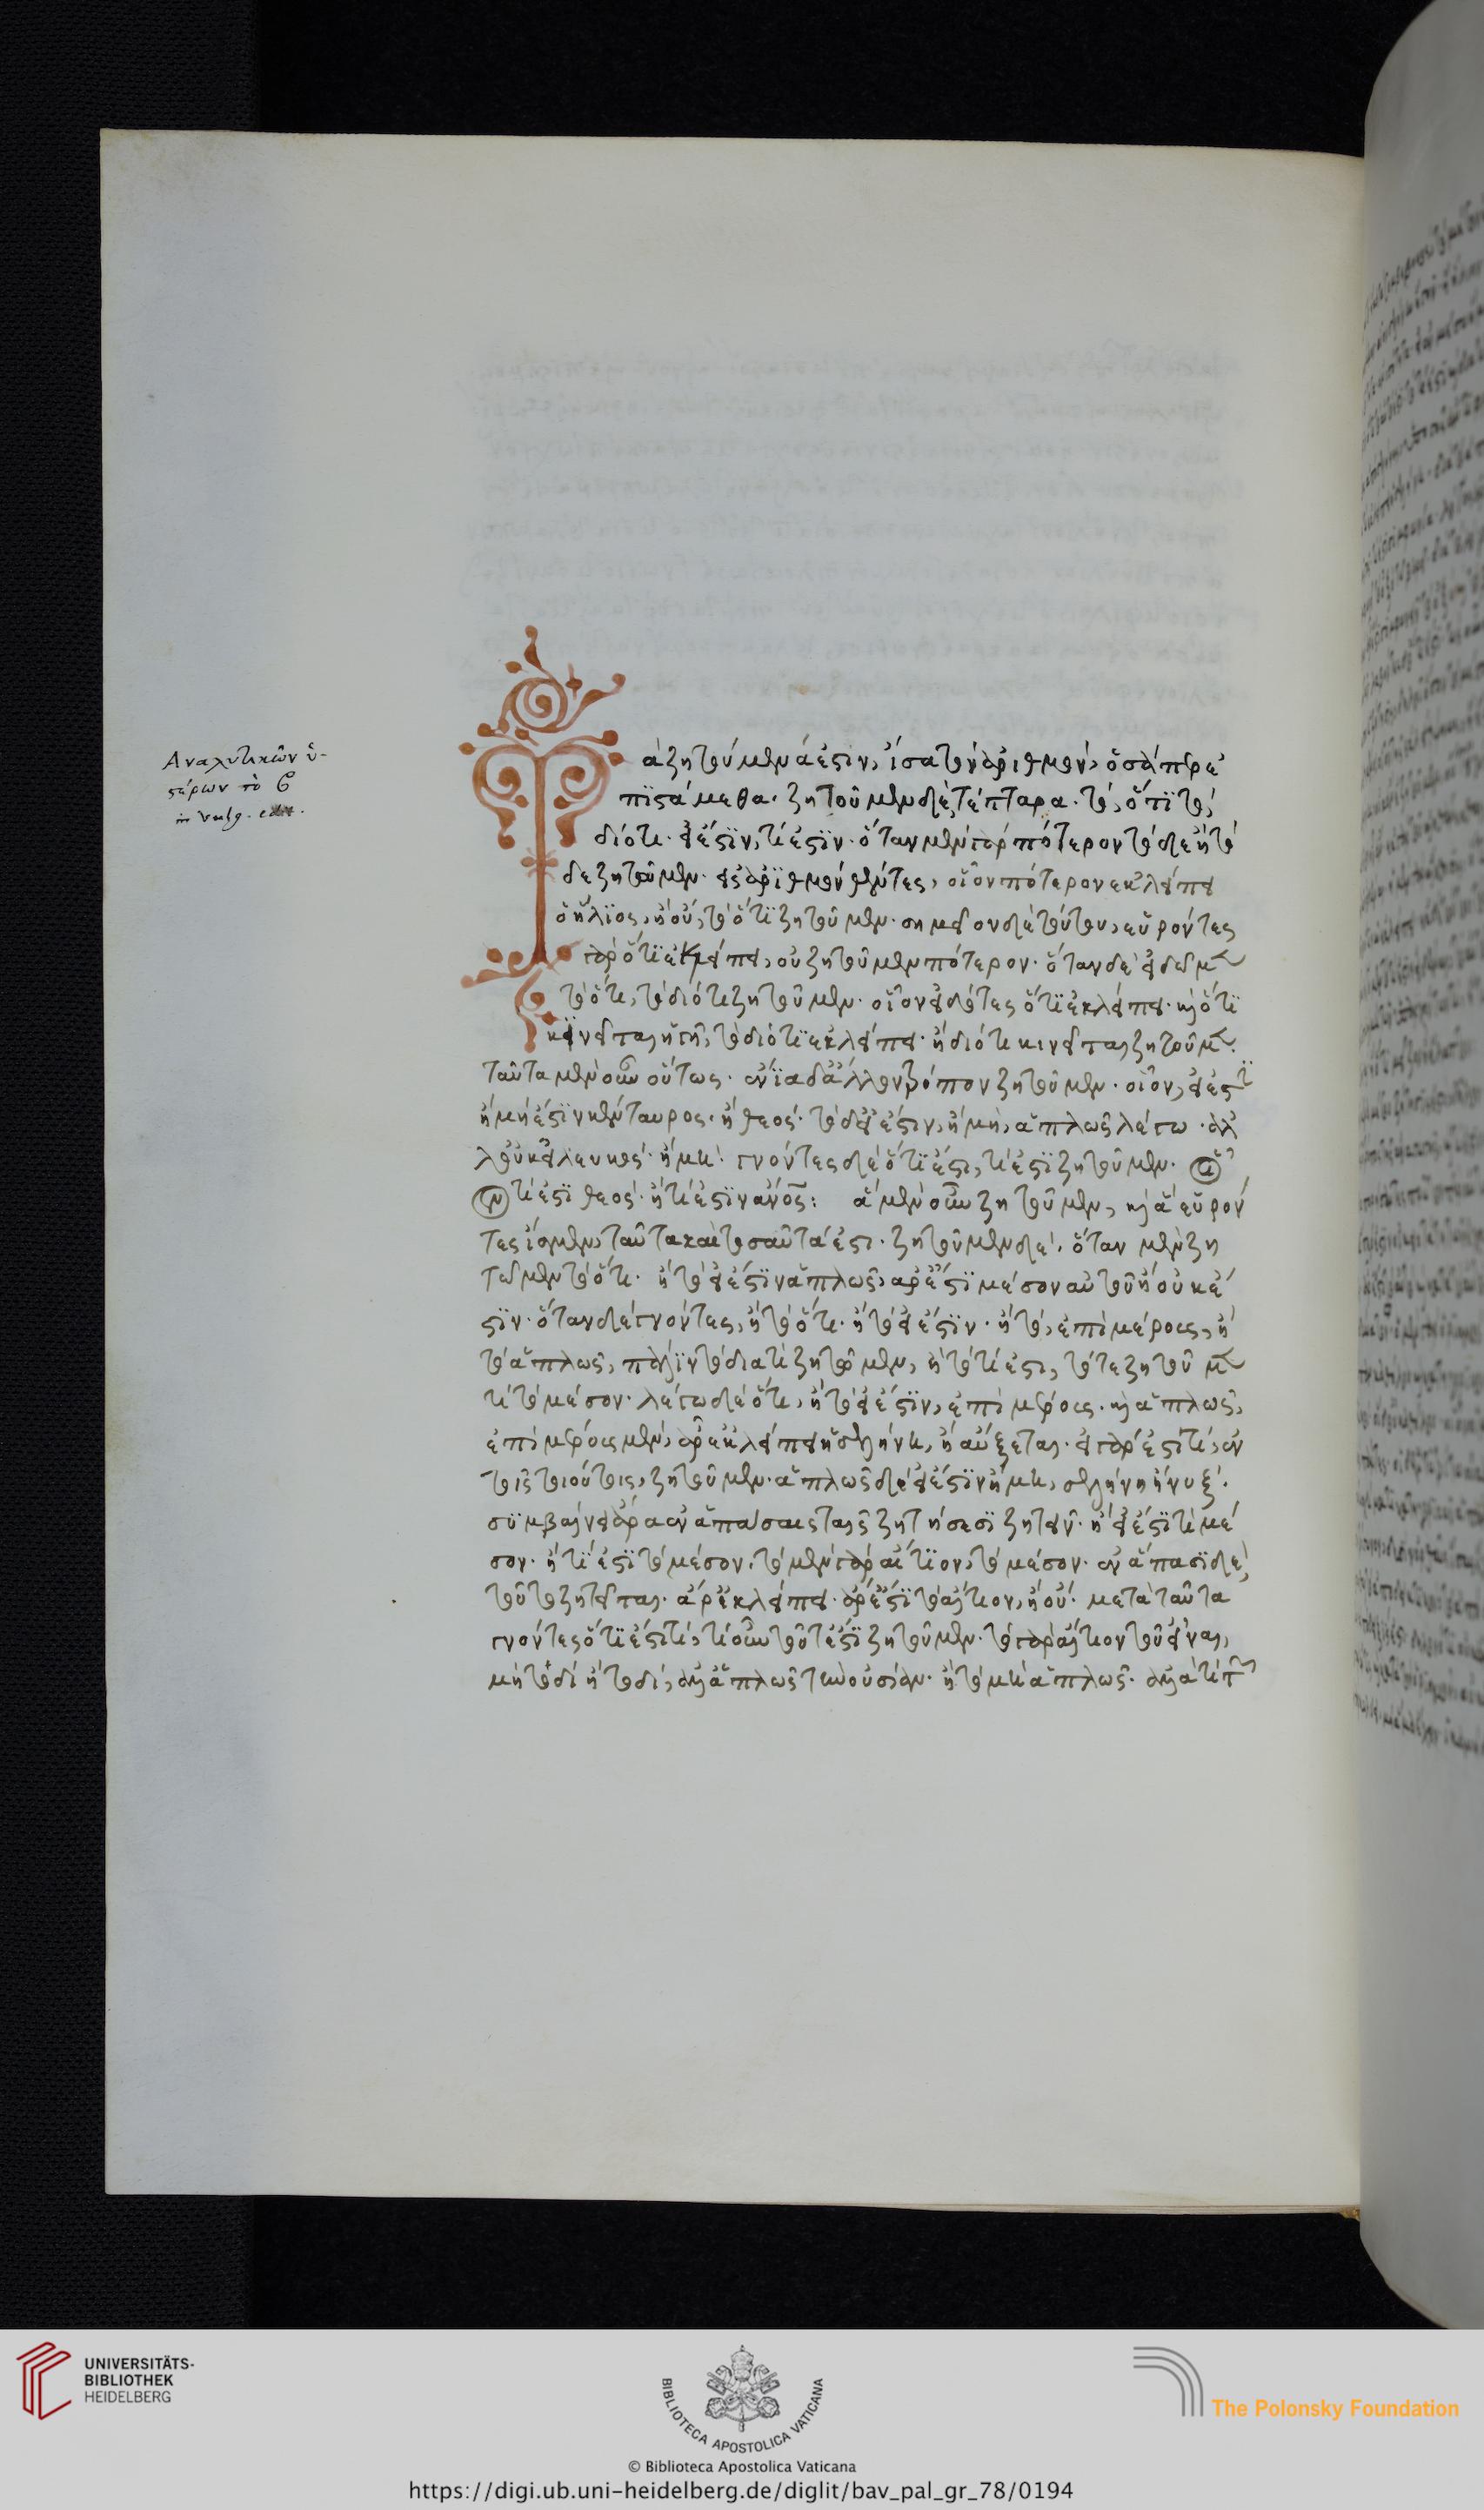 Ἀναλυτικῶν ὑ-
στέρων τὸ β
in vulg. edit.
Τὰ ζητούμενά ἐστιν, ἴσα τὸν ἀριθμὸν, ὅσάπερ ἐ
πιστάμεθα. ζητοῦμεν δὲ τέτταρα. τό, ὅτι τό,
διότι. εἰ ἔστιν, τί ἐστιν. ὅταν μὲν γὰρ πότερον τόδε ἢ τό
δε ζητοῦμεν. εἰς ἀριθμὸν θέντες, οἷον πότερον ἐκλείπει
ὁ ἥλιος, ἢ οὔ, τὸ ὅτι ζητοῦμεν. σημεῖον δὲ τούτου, εὑρόντες
γὰρ ὅτι ἐκλείπει, οὐ ζητοῦμεν πότερον. ὅταν δὲ εἰδῶμεν
τὸ ὅτι, τὸ διότι ζητοῦμεν. οἷον εἰδότες ὅτι ἐκλείπει. καὶ ὅτι
κινεῖται ἡ γῆ, τὸ διότι ἐκλείπει. ἢ διότι κινεῖται ζητοῦμεν.
ταῦτα μὲν οὖν οὕτως. ἔνια δ' ἄλλον τρόπον ζητοῦμεν. οἷον, εἰ ἔστι
ἢ μὴ ἔστιν κένταυρος. ἢ θεός. τὸ δ' εἰ ἔστιν, ἢ μὴ, ἁπλῶς λέγω. ἀλ
λ' οὐκ εἰ λευκὸς. ἢ μή. γνόντες δὲ ὅτι ἔστι, τί ἐστι ζητοῦμεν. οἷ
ον τί ἐστι θεός. ἢ τί ἐστιν ἄνος: ἃ μὲν οὖν ζητοῦμεν, καὶ ἃ εὑρόν
τες ἴσμεν, ταῦτα καὶ τοσαῦτά ἐστι. ζητοῦμεν δέ. ὅταν μὲν ζη
τῶμεν τὸ ὅτι. ἢ τὸ εἰ ἔστιν ἁπλῶς, ἆρ' ἔστι μέσον αὐτοῦ ἢ οὐκ ἔ
στιν. ὅταν δὲ γνόντες, ἢ τὸ ὅτι. ἢ τὸ εἰ ἔστιν. ἢ τὸ, ἐπὶ μέρους, ἢ
τὸ ἁπλῶς, πάλιν τὸ διατί ζητῶμεν, ἢ τὸ τί ἐστι, τότε ζητοῦμεν
τί τὸ μέσον. λέγω δὲ ὅτι, ἢ τὸ εἰ ἔστιν, ἐπὶ μέρους. καὶ ἁπλῶς,
ἐπὶ μέρους μὲν, ἆρ' ἐκλείπει ἡ σελήνη, ἢ αὔξεται. εἰ γὰρ ἔστι τί, ἐν
τοῖς τοιούτοις, ζητοῦμεν. ἁπλῶς δέ εἰ ἔστιν ἢ μὴ, σελήνη ἢ νύξ.
συμβαίνει ἄρα ἐν ἁπάσαις ταῖς ζητήσεσι ζητεῖν. ἢ εἰ ἔστι τὶ μέ
σον. ἢ τί ἐστι τὸ μέσον. τὸ μὲν γὰρ αἴτιον, τὸ μέσον. ἐν ἅπασι δὲ,
τοῦτο ζητεῖται. ἆρ' ἐκλείπει. ἆρ' ἔστι τὸ αἴτιον, ἢ οὔ. μετὰ ταῦτα
γνόντες ὅτι ἔστι τί, τί οὖν τοῦτ' ἔστι ζητοῦμεν. τὸ γὰρ αἴτιον τοῦ εἶναι,
μὴ τοδὶ ἢ τοδί, ἀλλ' ἁπλῶς τὴν οὐσίαν. ἢ τὸ μὴ ἁπλῶς. ἀλλά τι τῶν
UNIVERSITÄTS-
BIBLIOTHEK
HEIDELBERG
BIBLIOTECA APOSTOLICA VATICANA
The Polonsky Foundation
© Biblioteca Apostolica Vaticana
https://digi.ub.uni-heidelberg.de/diglit/bav_pal_gr_78/0194